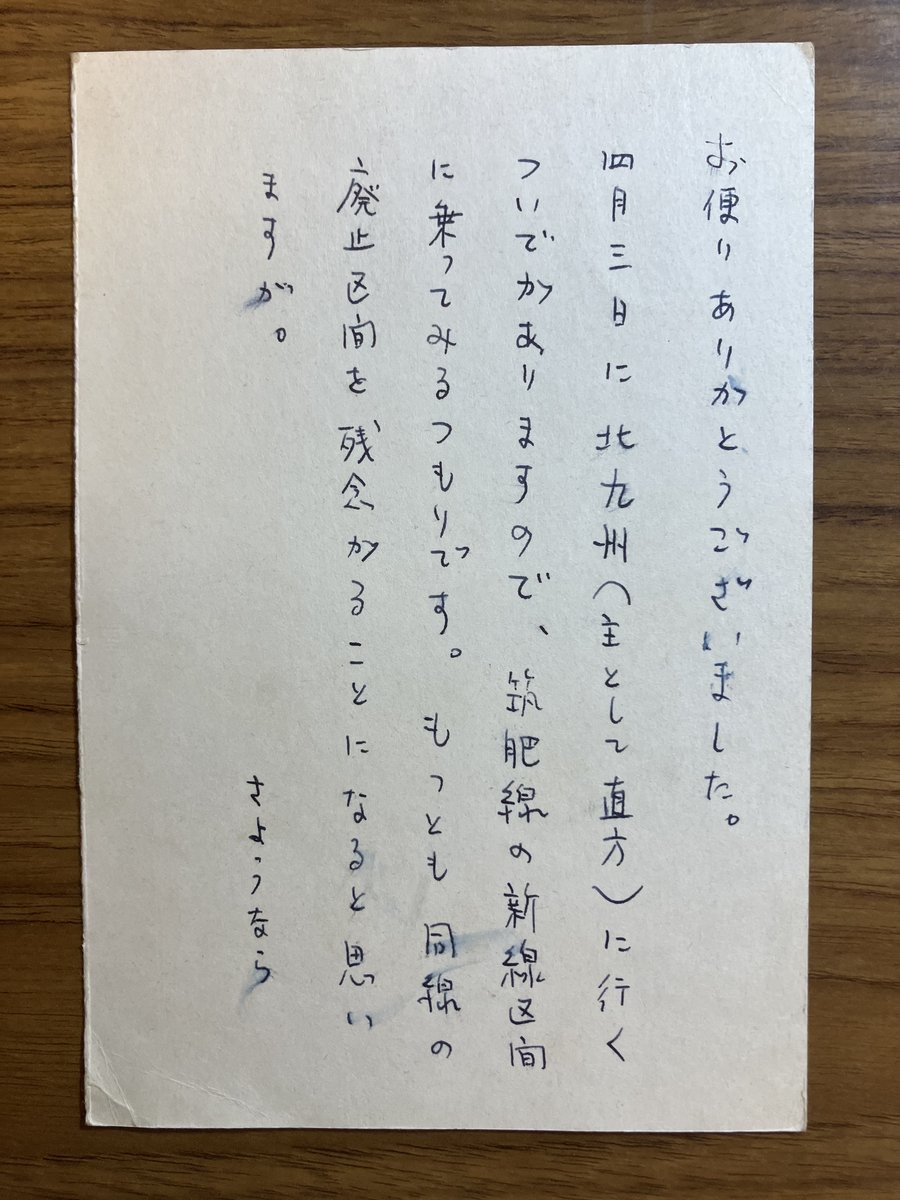 お便りありがとうございました。
四月三日に北九州(主として直方)に行く
ついでがありますので、筑肥線の新線区間
に乗ってみるつもりです。もっとも同線の
廃止区間を残念がることになると思い
ますが。
さようなら